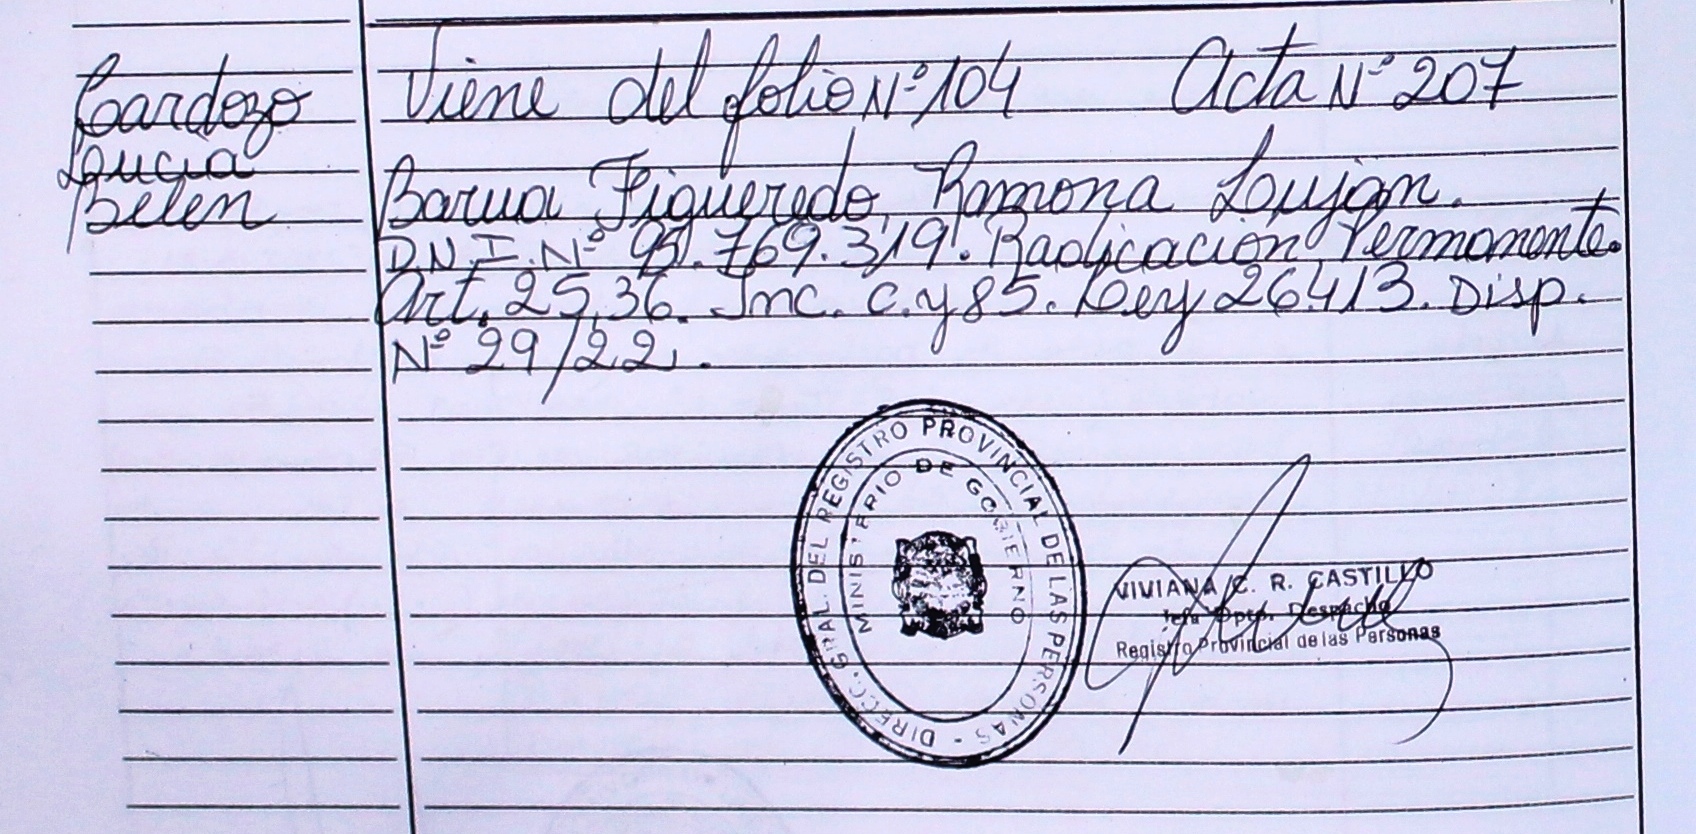 Cardozo
Loucia
Belen
Viene del folio Nº 104 Acta Nº 207
Barua Figueredo, Ramona Loujan.
D.N.I. Nº 95.769.319. Radicacion Permanente.
Art. 25,36. Inc. C. y 85. Ley 26.413. Disp.
Nº 29/22.
DIRECC. GRAL. DEL REGISTRO PROVINCIAL DE LAS PERSONAS -
MINISTERIO DE GOBIERNO
VIVIANA C. R. CASTILLO
Jefa Dpto. Despacho
Registro Provincial de las Personas